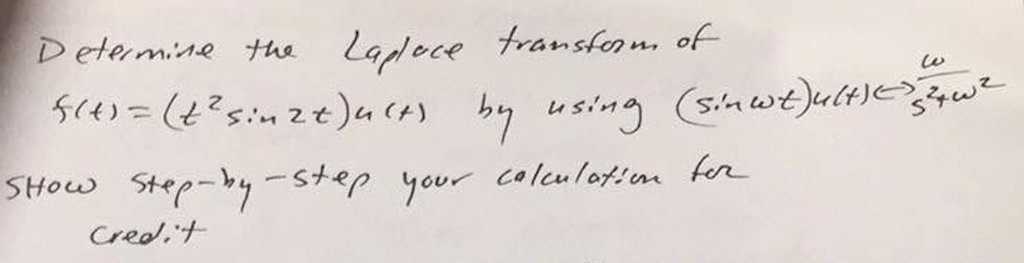 Determine the Laplace transform of
f(t) = (t² sin 2t)u(t) by using (sin ωt)u(t) ↔ ω/(s²+ω²)
SHOW step-by-step your calculation for
credit